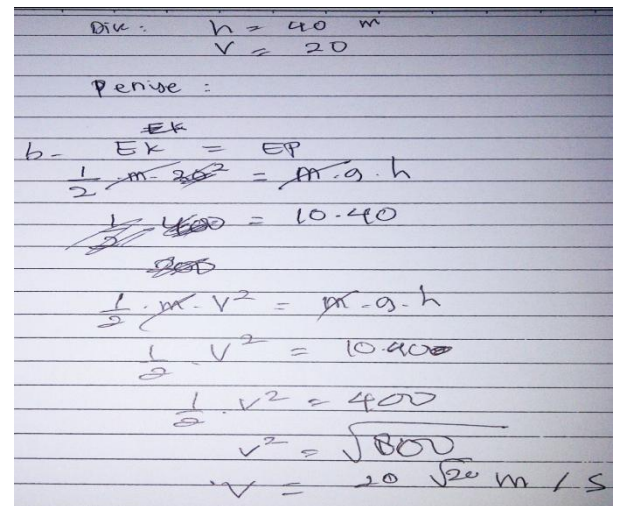 Dik : h = 40 m
V = 20
Penise :
EK
b- EK = EP
1/2 m. 20² = m.g.h
1/2 400 = 10.40
200
1/2 . m . V² = m.g.h
1/2 . V² = 10.400
1/2 . V² = 400
V² = √800
V = 20 √20 m / s